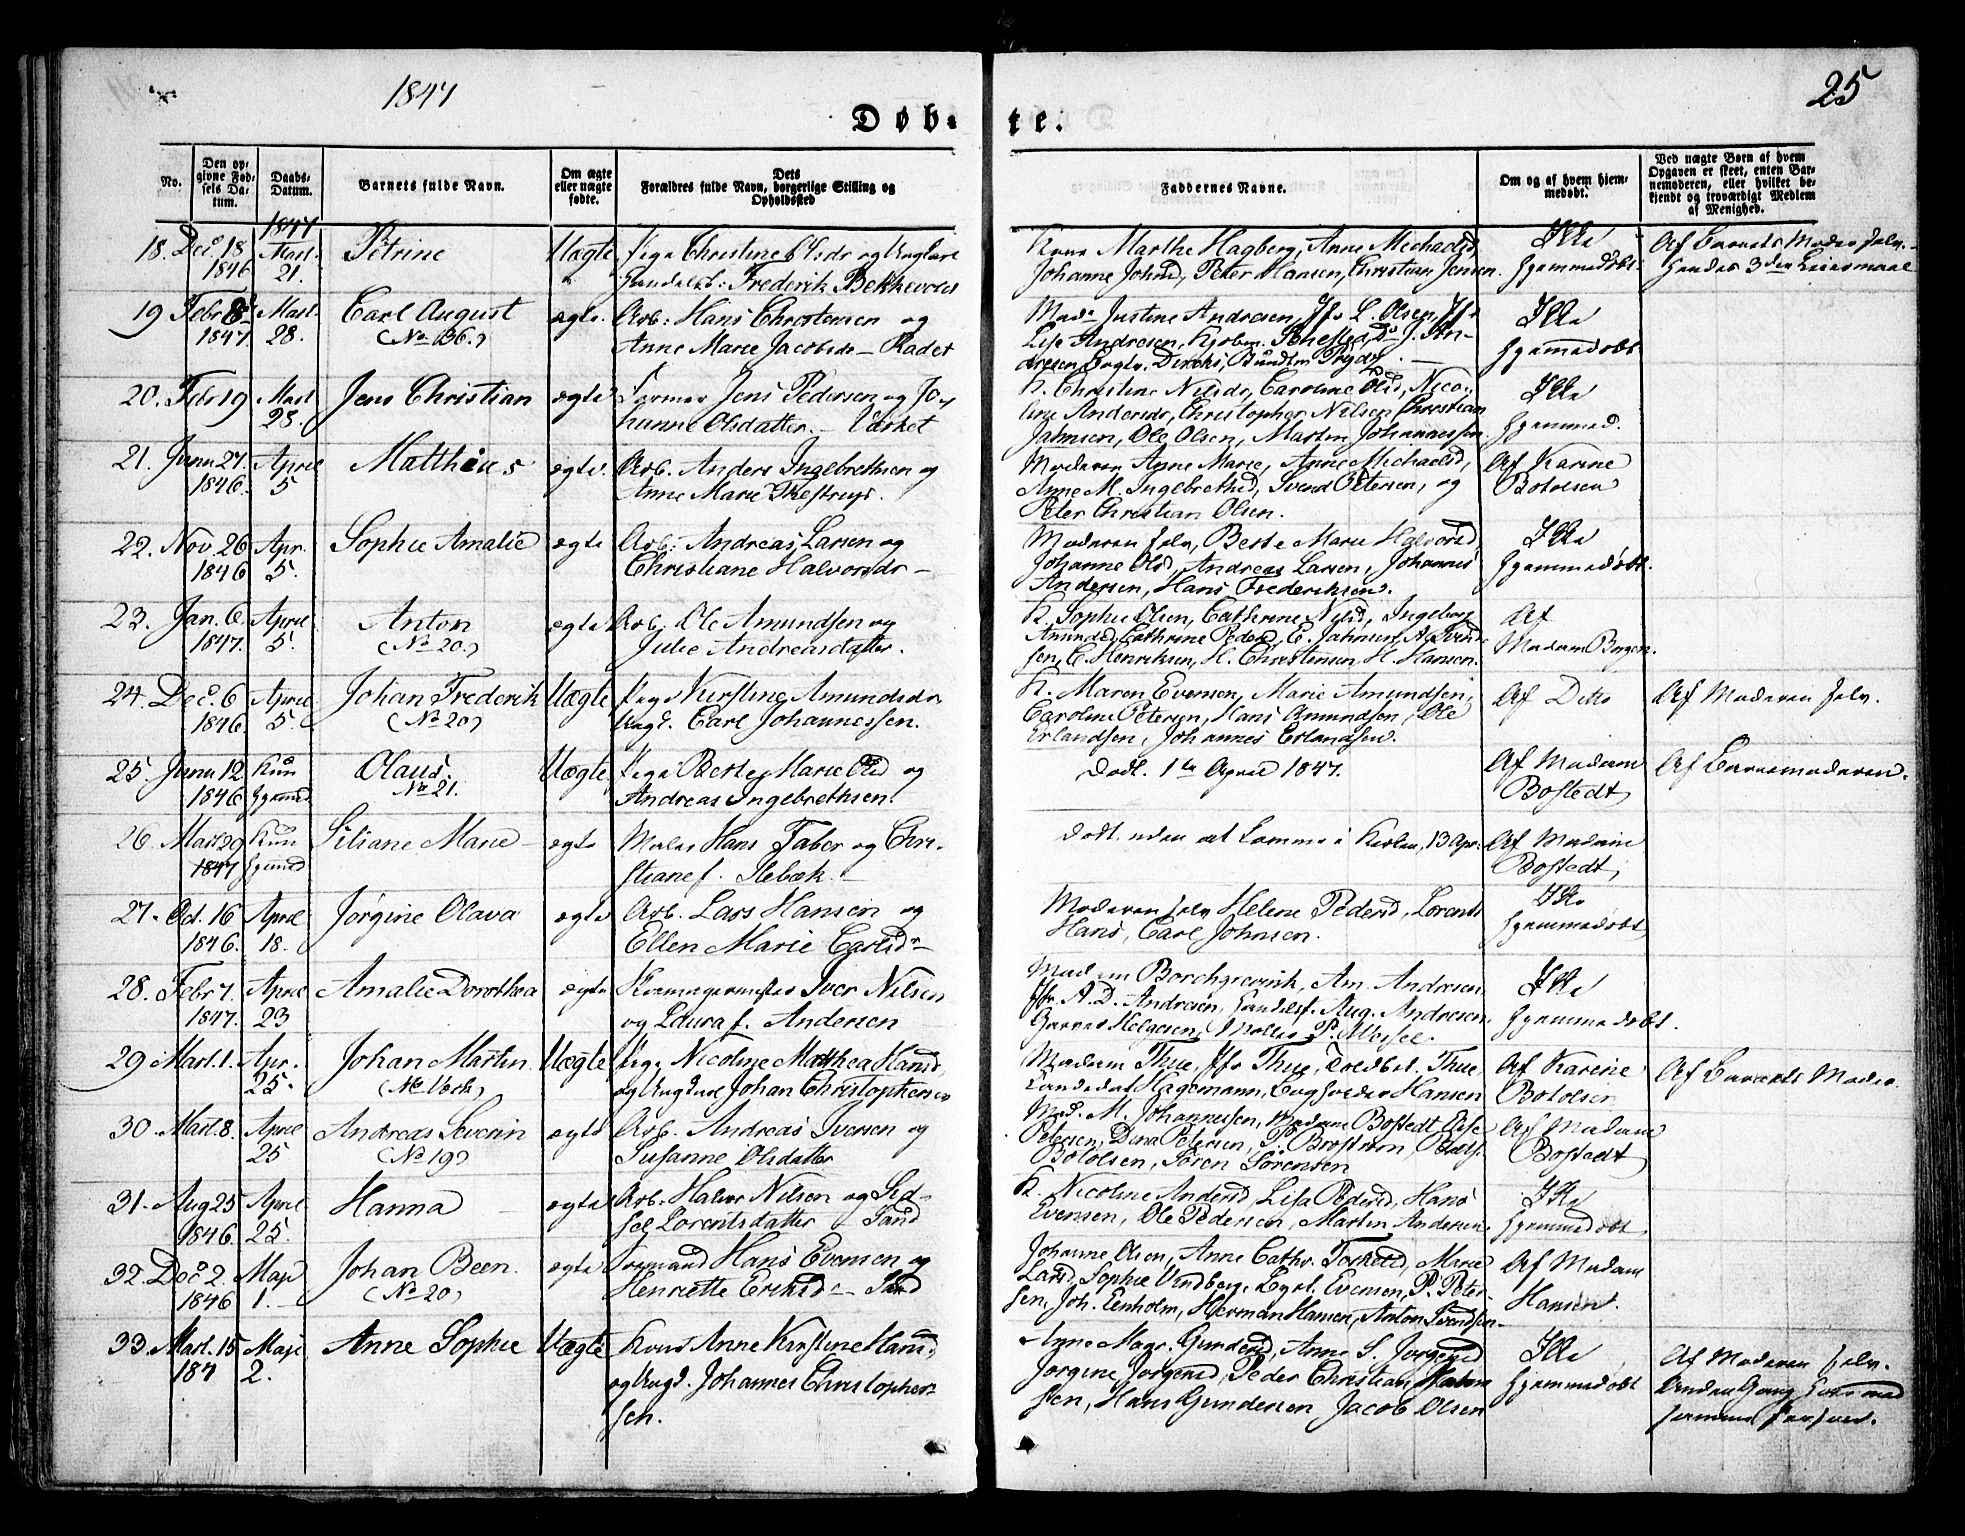 1847
25
Døb-te.
No.
Den op-
givne Fød-
sels Da-
tum.
Daabs-
Datum.
Barnets fulde Navn.
Om ægte
eller uægte
fødte.
Dets
Forældres fulde Navn, borgerlige Stilling og
Opholdssted
Faddernes Navne.
Om og af hvem hjem-
medøbt.
Ved uægte Børn af hvem
Opgaven er skeet, enten Bar-
nemoderen, eller hvilket be-
kjendt og troværdigt Medlem
af Menighed.
18. Dec. 18
1846
1847
Mart.
21.
Petrine
Uægte
Pige Christine Olsdr og Ungkarl
Handelsb. Frederik Bekkevold
Kone Marthe Hagberg, Anne Michaelsd,
Johanne Johnsd, Peter Hansen, Christian Jensen.
Ikke
hjemmedøbt.
Af Barnets Moder selv.
Hendes 3die Leiermaal
19 Febr 8
1847
Mart.
28.
Carl August
(No 136.)
ægte.
Arb: Hans Christensen og
Anne Marie Jacobsdr - Kadet
Mad. Justine Andresen, Jfr L. Olsen, Jfr
Lise Andresen, Kjøbm. Stenersen, Do J. An-
dresen,
Ikke
hjemmedøbt
20. Febr 19
Mart
28.
Jens Christian
ægte
Former Jens Pedersen og Jo-
hanne Olsdatter. - Værket
K. Christine Nilsdr, Caroline Olsd, Nico-
line Andersdr, Christopher Nilsen Christian
Jahnsen, Ole Olsen, Martin Johannessen.
Ikke
hjemmed.
21. Junu 27
1846.
April
5
Matthæus
ægte.
Arb. Anders Ingebrethsen og
Anne Marie
Moderen Anne Marie, Anne Michaelsd,
Anne M. Ingebrethsd, Svend Petersen, og
Peter Christian Olsen.
Af Karine
Botolsen
22. Nov. 26
1846
Apr.
5.
Sophie Amalie
ægte
Arb: Andreas Larsen og
Christiane Halvorsdr -
Moderen selv, Berte Marie Halvorsd,
Johanne Olsd, Andreas Larsen, Johannes
Andersen, Hans Frederiksen.
Ikke
hjemmedøbt.
23. Jan. 6.
1847.
April
5.
Anton
(No 20.)
ægte
Arb: Ole Amundsen og
Julie Andreasdatter.
K. Sophie Olsen, Cathrine Nilsd, Ingeborg
Amundsd, Cathrine Pedersd, E. Jahnsen, A. Svend-
sen, C. Henriksen, H. Christensen, H. Hansen.
Af
Madam Borgen.
24. Dec. 6
1846
April
5.
Johan Frederik
(No 20)
Uægte
Pige Kirstine Amundsdr
Ungk. Carl Johannessen.
K. Maren Evensen, Marie Amundsen,
Caroline Petersen, Hans Amundsen, Ole
Erlandsen, Johannes Erlandsen.
Af Ditto
Af Moderen selv.
25. Junu 12
1846
Kun
hjemmed
Olaus.
No 21.
Uægte
Pige Berte Marie Olsd og
Andreas Ingebrethsen.
Død. 1te April 1847.
Af Madam
Bostedt,
Af Barnemoderen.
26. Mart 29
1847
Kun
hjemmed
Siliane Marie
ægte
Maler Hans Faber og Chri-
stiane f. Slebæk.
Død. uden at komme i Kirken, 13 Apr.
Af Madam
Bostedt,
27. Oct. 16
1846.
April
18.
Jørgine Olava
ægte
Arb. Lars Hansen og
Ellen Marie Carlsdr
Moderen selv, Helene Pedersd, Lorents
Hans, Carl Johnsen.
Ikke
hjemmedøbt
28. Febr 7.
1847.
April
23
Amalie Dorothea
ægte
Skomagermester Iver Nilsen
og Laura f. Andersen
Madam Borchgrevink, Am. Andresen
Jfr A. D. Andresen, Handelsf. Aug. Andresen,
Garver Helgesen, Møller P. Messel.
Ikke
hjemmedøbt.
29 Mart. 1.
Apr.
25.
Johan Martin
(No Verk)
Uægte
Pige Nicoline Matthea Hansd
og Ungkarl Johan Christophersen
Madam Thue, Jfr Thue, Toldbet. Thue
Landedat Hagemann, Hansen
Af Karine
Botolsen
Af Barnets Moder.
30. Mart. 8.
April
25
Andreas Severin
(No 19)
ægte
Arb. Andreas Iversen og
Susanne Olsdatter
Mad. M. Johannessen, Madam Bostedt, Else
Petersen, Dina Petersen, P. Brostrøm,
Botolsen, Søren Sørensen
Af Madam
Bostedt,
31. Aug 25
1846.
April
25.
Hanna
ægte
Arb. Halvor Nilsen og Sid-
sel Lorentsdatter - Sand
K. Nicoline Andersd, Lisa Pedersd, Hans
Evensen, Ole Pedersen, Martin Andersen
Ikke
hjemmedøbt.
32. Dec. 2.
1846
Maji
1.
Johan Been.
(No 20)
ægte
Formand Hans Evensen og
Henriette Eriksd - Sand
Johanne Olsen, Anne Cathr. Torkelsd, Marie
Larsd, Sophie Lindberg, Evensen, P. Peter-
sen, Joh. Eenholm, Herman Hansen, Anton Svendsen
Af Madam
Hansen.
33. Mart. 15
184
Maji
2.
Anne Sophie
Uægte
Kone Anne Kirstine Hansd,
og Ungk. Johannes Christopher-
sen.
Anne Marg. Gundersd, Anne S. Jørgensd
Jørgine Jørgensd, Peder Christian
sen, Hans Gundersen Jacob Olsen
Ikke
hjemmedøbt
Af Moderen selv.
Anden Gang
samme Person.